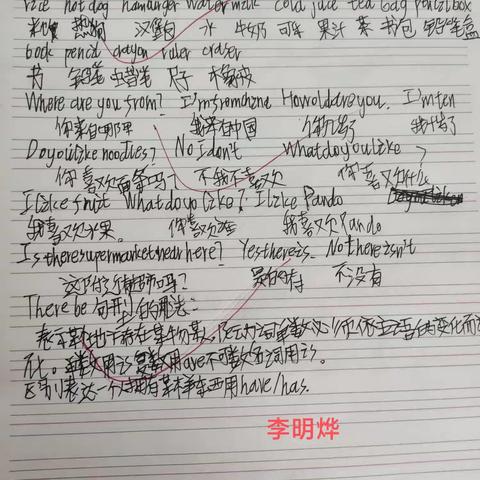 rice hot dog hamburger water milk cold juice tea bag pencilbox
米饭 热狗 汉堡包 水 牛奶 可乐 果汁 茶 书包 铅笔盒
book pencil crayon ruler eraser
书 铅笔 蜡笔 尺子 橡皮
Where are you from? I'm from China How old are you. I'm ten
你来自哪里 我来自中国 你几岁了 我十岁了
Do you like noodles? No I don't What do you like?
你喜欢面条吗? 不我不喜欢 你喜欢什么
I like fruit What do yo like? I like Pando
我喜欢水果。 你喜欢 我喜欢Pando
Is there supermarket near here? Yes there is. No there isn't
这 吗? 是的有 不没有
There be 句型的用法:
表示某地 存在某物某人, be动词 单数 必须依主语的变化而
不可数名词用is.
区别 表达一个 拥有某样东西用have/has.
李明烨